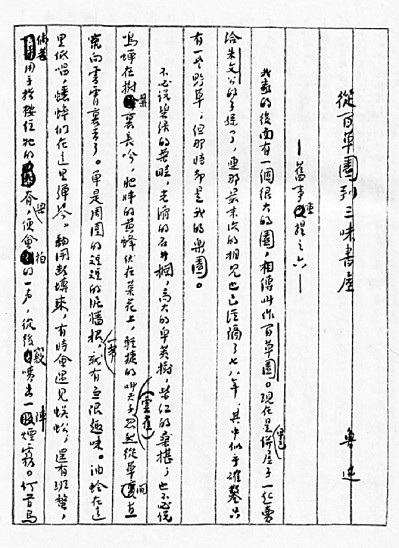 從百草園到三味書屋
魯迅
——舊事重提之六——
我家的後面有一個很大的園,相傳叫作百草園。現在是早已併屋子一起賣
給朱文公的子孫了,連那最末次的相見也已經隔了七八年,其中似乎確鑿只
有一些野草;但那時卻是我的樂園。
不必說碧綠的菜畦,光滑的石井欄,高大的皁莢樹,紫紅的桑椹;也不必說
鳴蟬在樹葉裏長吟,肥胖的黃蜂伏在菜花上,輕捷的叫天子(雲雀)忽然從草間直
竄向雲霄裏去了。單是周圍的短短的泥牆根一帶,就有無限趣味。油蛉在這
里低唱,蟋蟀們在這里彈琴。翻開斷磚來,有時會遇見蜈蚣;還有斑蝥,
倘若用手指按住牠的脊梁,便會拍的一聲,從後竅噴出一陣煙霧。何首烏